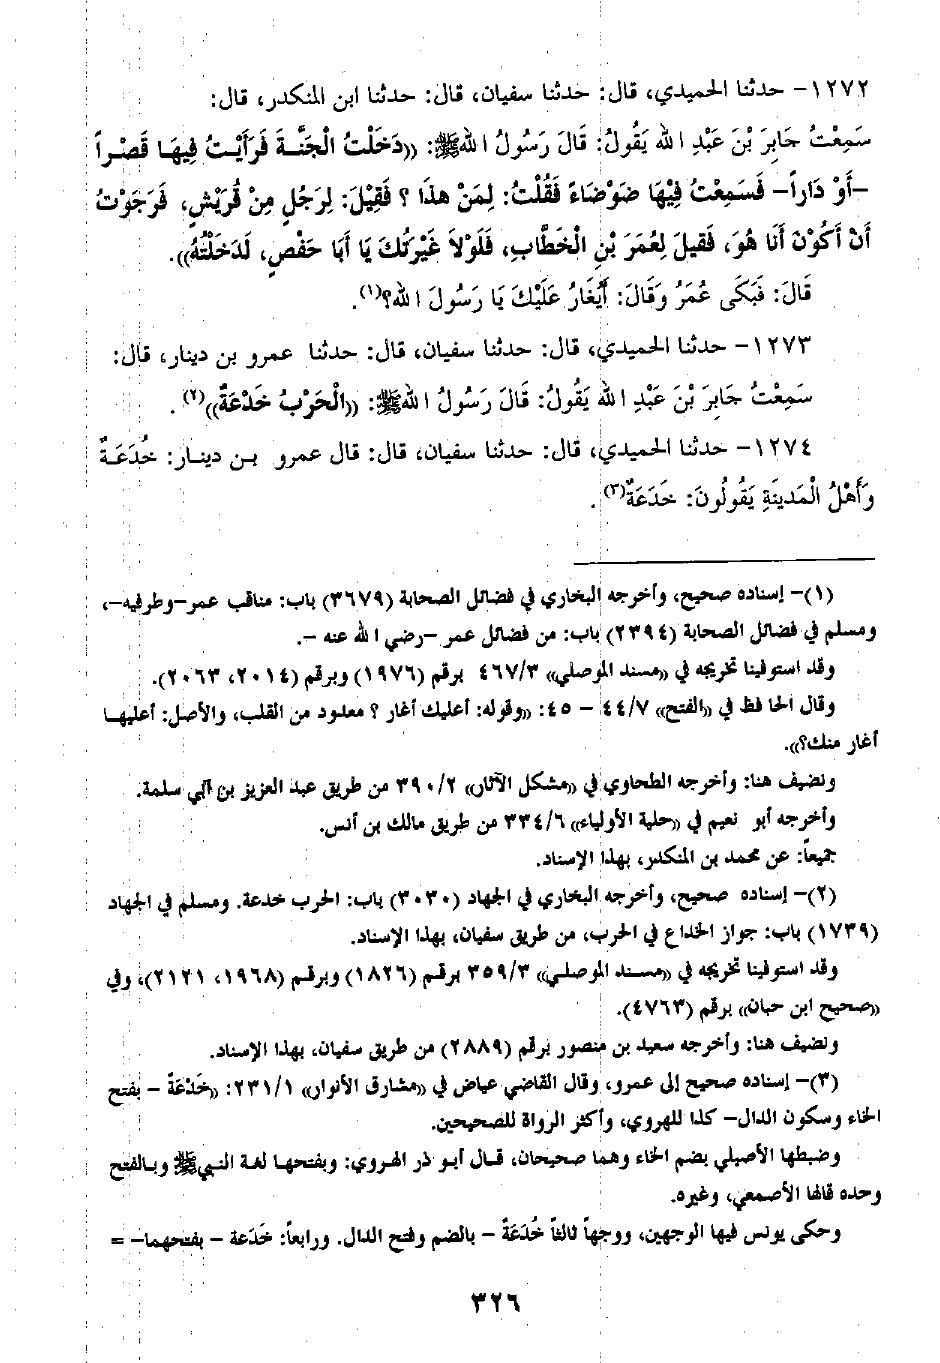 ١٢٧٢- حدثنا الحميدي، قال: حدثنا سفيان، قال: حدثنا ابن المنكدر، قال:
سَمِعْتُ جَابِرَ بْنَ عَبْدِ اللهِ يَقُولُ: قَالَ رَسُولُ اللهِ ﷺ: ((دَخَلْتُ الْجَنَّةَ فَرَأَيْتُ فِيهَا قَصْراً
-أَوْ دَاراً- فَسَمِعْتُ فِيهَا ضَوْضَاءً فَقُلْتُ: لِمَنْ هذَا ؟ فَقِيْلَ: لِرَجُلٍ مِنْ قُرَيْشٍ، فَرَجَوْتُ
أَنْ أَكُوْنَ أَنَا هُوَ، فَقيلَ لِعُمَرَ بْنِ الْخَطَّابِ، فَلَوْلاَ غَيْرَتُكَ يَا أَبَا حَفْصٍ، لَدَخَلْتُهُ)).
قَالَ: فَبَكَى عُمَرُ وَقَالَ: أَيُغَارُ عَلَيْكَ يَا رَسُولَ اللهِ؟(١).
١٢٧٣- حدثنا الحميدي، قال: حدثنا سفيان، قال: حدثنا عمرو بن دينار، قال:
سَمِعْتُ جَابِرَ بْنَ عَبْدِ اللهِ يَقُولُ: قَالَ رَسُولُ اللهِ ﷺ: ((الْحَرْبُ خَدْعَةٌ))(٢).
١٢٧٤- حدثنا الحميدي، قال: حدثنا سفيان، قال: قال عمرو بن دينار: خُدَعَةٌ
وَأَهْلُ الْمَدينَةِ يَقُولُونَ: خَدَعَةٌ(٣).
(١)- إسناده صحيح، وأخرجه البخاري في فضائل الصحابة (٣٦٧٩) باب: مناقب عمر -وطرفيه-،
ومسلم في فضائل الصحابة (٢٣٩٤) باب: من فضائل عمر -رضي الله عنه -.
وقد استوفينا تخريجه في ((مسند الموصلي)) ٤٦٧/٣ برقم (١٩٧٦) وبرقم (٢٠١٤، ٢٠٦٣).
وقال الحافظ في ((الفتح)) ٤٤/٧ - ٤٥: ((وقوله: أعليك أغار ؟ معدود من القلب، والأصل: أعليها
أغار منك؟)).
ونضيف هنا: وأخرجه الطحاوي في ((مشكل الآثار)) ٣٩٠/٢ من طريق عبد العزيز بن أبي سلمة.
وأخرجه أبو نعيم في ((حلية الأولياء)) ٣٣٤/٦ من طريق مالك بن أنس.
جميعاً: عن محمد بن المنكدر، بهذا الإسناد.
(٢)- إسناده صحيح، وأخرجه البخاري في الجهاد (٣٠٣٠) باب: الحرب خدعة. ومسلم في الجهاد
(١٧٣٩) باب: جواز الخداع في الحرب، من طريق سفيان، بهذا الإسناد.
وقد استوفينا تخريجه في ((مسند الموصلي)) ٣٥٩/٣ برقم (١٨٢٦) وبرقم (١٩٦٨، ٢١٢١)، وفي
((صحيح ابن حبان)) برقم (٤٧٦٣).
ونضيف هنا: وأخرجه سعيد بن منصور برقم (٢٨٨٩) من طريق سفيان، بهذا الإسناد.
(٣)- إسناده صحيح إلى عمرو، وقال القاضي عياض في ((مشارق الأنوار)) ٢٣١/١: ((خَدْعَةً - بفتح
الخاء وسكون الدال- كذا للهروي، وأكثر الرواة للصحيحين.
وضبطها الأصيلي بضم الخاء وهما صحيحان، قال أبو ذر الهروي: وبفتحها لغة النبي ﷺ وبالفتح
وحده قالها الأصمعي، وغيره.
وحكى يونس فيها الوجهين، ووجهاً ثالثاً خُدَعَةٌ - بالضم وفتح الدال. ورابعاً: خَدَعة - بفتحهما- =
٣٢٦